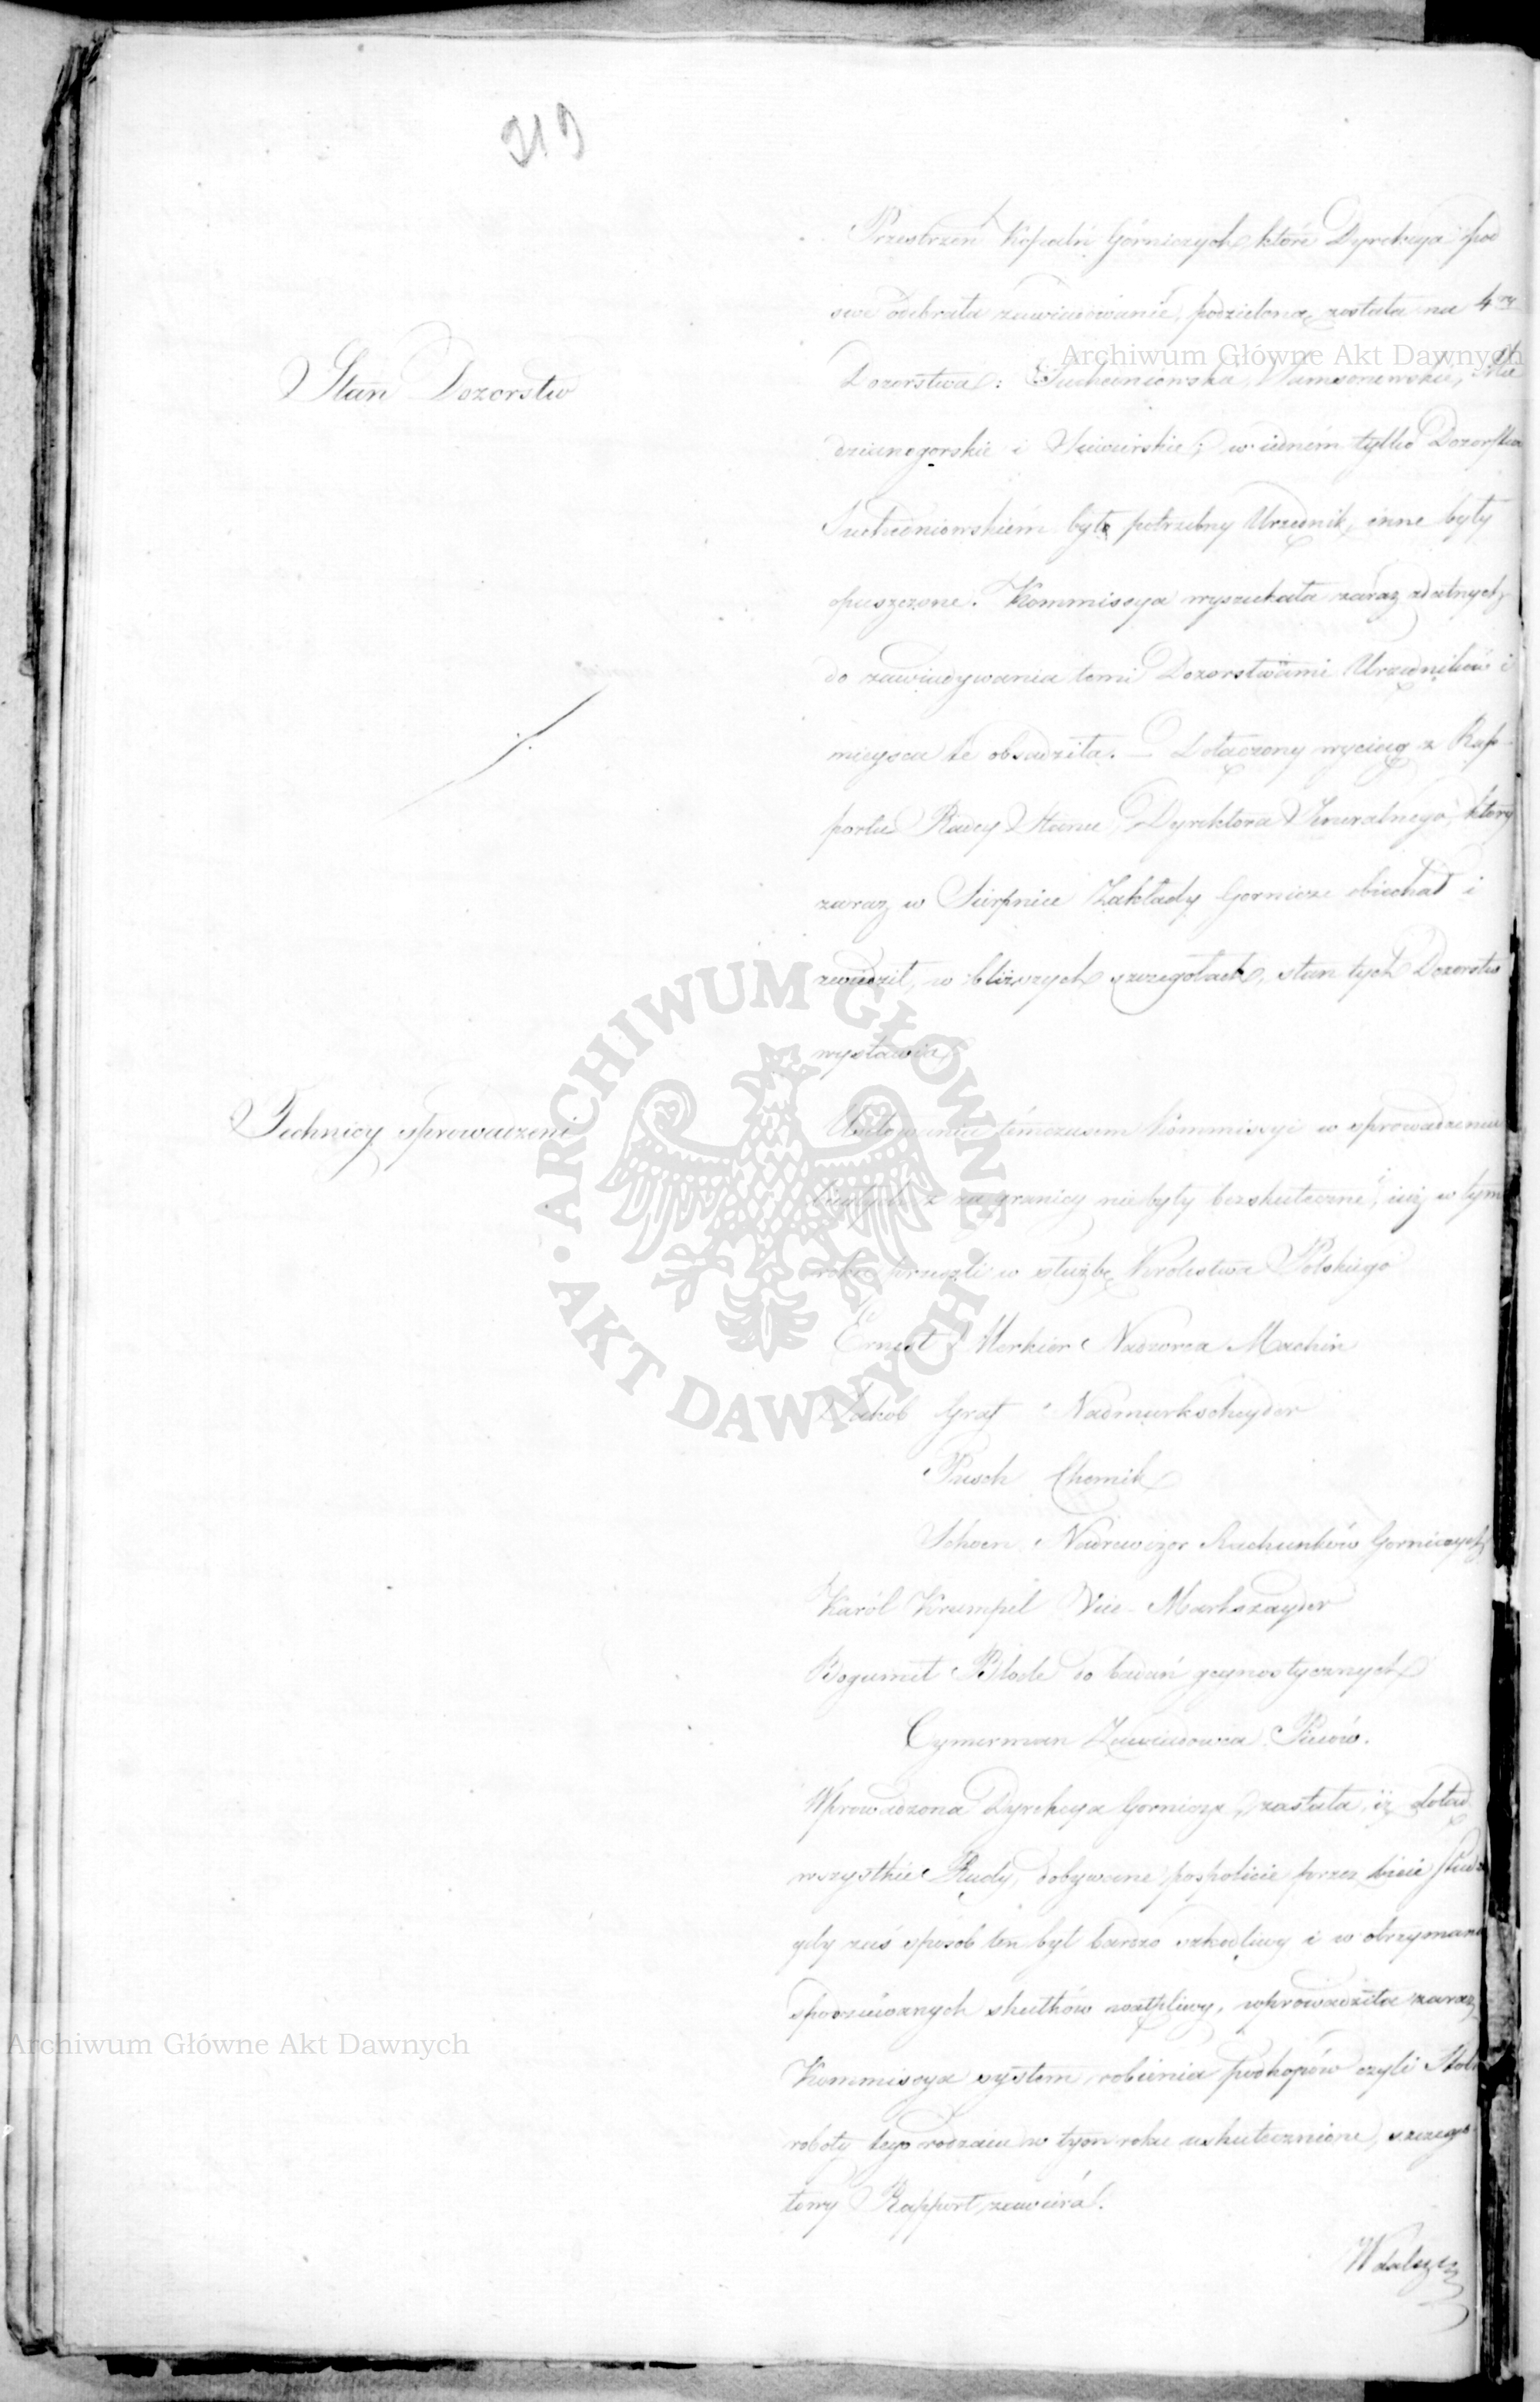 219
Przestrzeń Kopalń Górniczych, które Dyrekcya pod
swe odebrała zawiadowanie, podzielona została na 4ry
Archiwum Główne Akt Dawnych
Stan Dozorstw
Dozorstwa: Suchedniowskie, Samsonowskie, Mie
dzianogorskie i Siewierskie; w iedném tylko Dozorstwie
Suchedniowskiém był potrzebny Urzędnik, inne były
opuszczone. Kommissya wyszukała zaraz zdatnych
do zawiadywania temi Dozorstwami Urzędników i
mieysca te obsadziła. – Dołączony wyciąg z Rap-
portu Radcy Stanu, Dyrektora Jeneralnego, który
zaraz w Sierpniu Zakłady Gornicze obiechał i
zwiedził, w bliższych szczegołach, stan tych Dozorstw
wystawia.
Technicy sprowadzeni
Usiłowania témczasem Kommissyi w sprowadzeniu
biegłych z za granicy nie były bezskuteczne, iuż w tym
roku przeszli w służbę Krolestwa Polskiego
Ernest Merkier Nadzorca Machin
Jakob Graf Nadmarkscheyder
Pusch Chemik
Schoen Nadrewizor Rachunków Gorniczych
Karól Krumpel Vice-Markszayder
Bogumił Blode do badań geynostycznych
Cymerman Zawiadowca Pieców.
Wprowadzona Dyrekcya Gornicza, zastała, iż dotąd
wszystkie Rudy, dobywane pospolicie przez bicie
gdy zaś sposób ten był bardzo szkodliwy i w otrzymaniu
spodziewanych skutków wątpliwy, wprowadziła zaraz
Archiwum Główne Akt Dawnych
Kommissya system robienia podkopów czyli
roboty tego rodzaiu w tym roku uskutecznione, szczegó-
łowy Rapport zawiera.
W dalszym
ARCHIWUM GŁÓWNE · AKT DAWNYCH ·